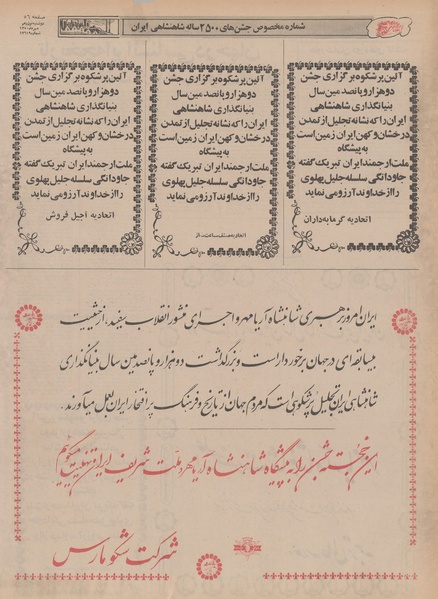 شماره مخصوص جشن‌های ۲۵۰۰ ساله شاهنشاهی ایران
آئین پرشکوه برگزاری جشن
دوهزار و پانصدمین سال
بنیانگذاری شاهنشاهی
ایران را که نشانه تجلیل از تمدن
درخشان و کهن ایران زمین است
به پیشگاه
ملت ارجمند ایران تبریک گفته
جاودانگی سلسله جلیل پهلوی
را از خداوند آرزو می نماید
اتحادیه گرمابه داران
آئین پرشکوه برگزاری جشن
دوهزار و پانصدمین سال
بنیانگذاری شاهنشاهی
ایران را که نشانه تجلیل از تمدن
درخشان و کهن ایران زمین است
به پیشگاه
ملت ارجمند ایران تبریک گفته
جاودانگی سلسله جلیل پهلوی
را از خداوند آرزو می نماید
اتحادیه صنف ساعت‌ساز
آئین پرشکوه برگزاری جشن
دوهزار و پانصدمین سال
بنیانگذاری شاهنشاهی
ایران را که نشانه تجلیل از تمدن
درخشان و کهن ایران زمین است
به پیشگاه
ملت ارجمند ایران تبریک گفته
جاودانگی سلسله جلیل پهلوی
را از خداوند آرزو می نماید
اتحادیه آجیل فروش
ایران امروز برهبری شاهنشاه آریامهر و اجرای منشور انقلاب سفید، از حیثیت
بیسابقه‌ای در جهان برخوردار است و بزرگداشت دوهزار و پانصدمین سال بنیانگذاری
شاهنشاهی ایران تجلیل پرشکوهی است که مردم جهان از تاریخ و فرهنگ پر افتخار ایران بعمل میآورند.
این خجسته جشن را به پیشگاه شاهنشاه آریامهر و ملت شریف ایران تهنیت میگوییم
شرکت شکو پارس